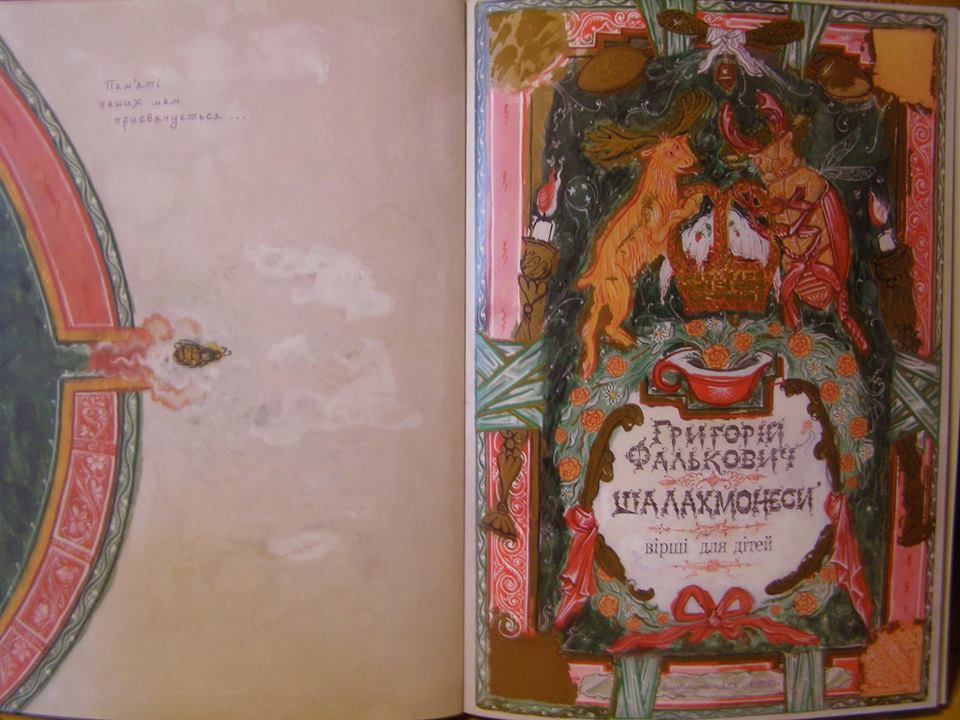 Пам'яті
наших мам
присвячується ...
ГРИГОРІЙ
ФАЛЬКОВИЧ
ШАЛАХМОНЕСИ
вірші для дітей